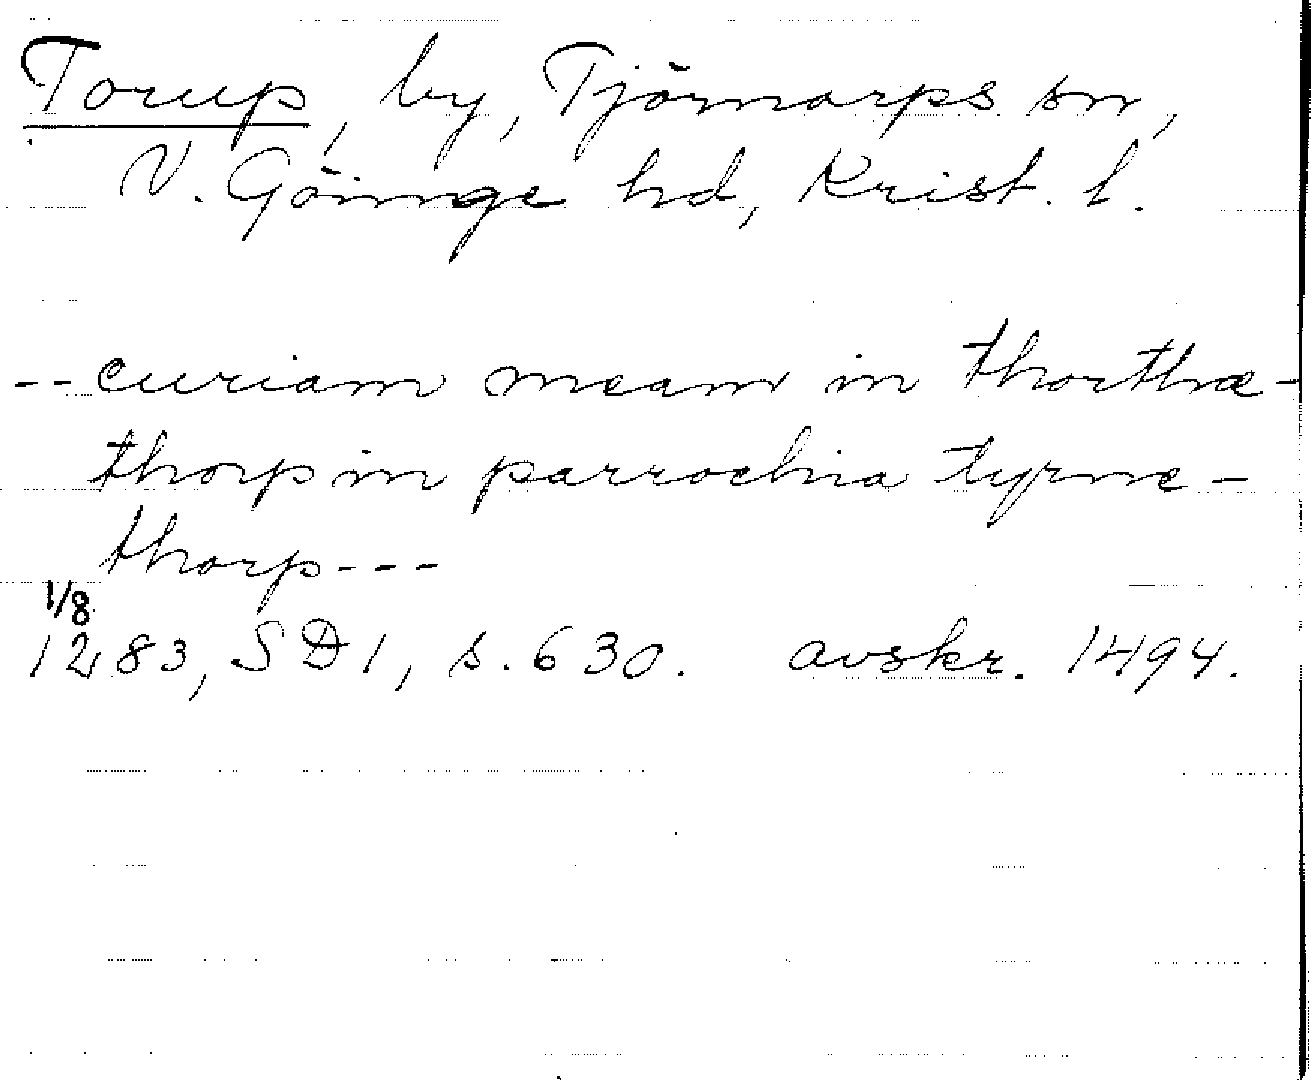 Torup, by, Tjörnarps sn,
V. Göinge hd, Krist. l.
-- curiam meam in thorthæ-
thorp in parrochia tyrne-
thorp ---
1/8
1283, SD 1, s. 630. avskr. 1494.